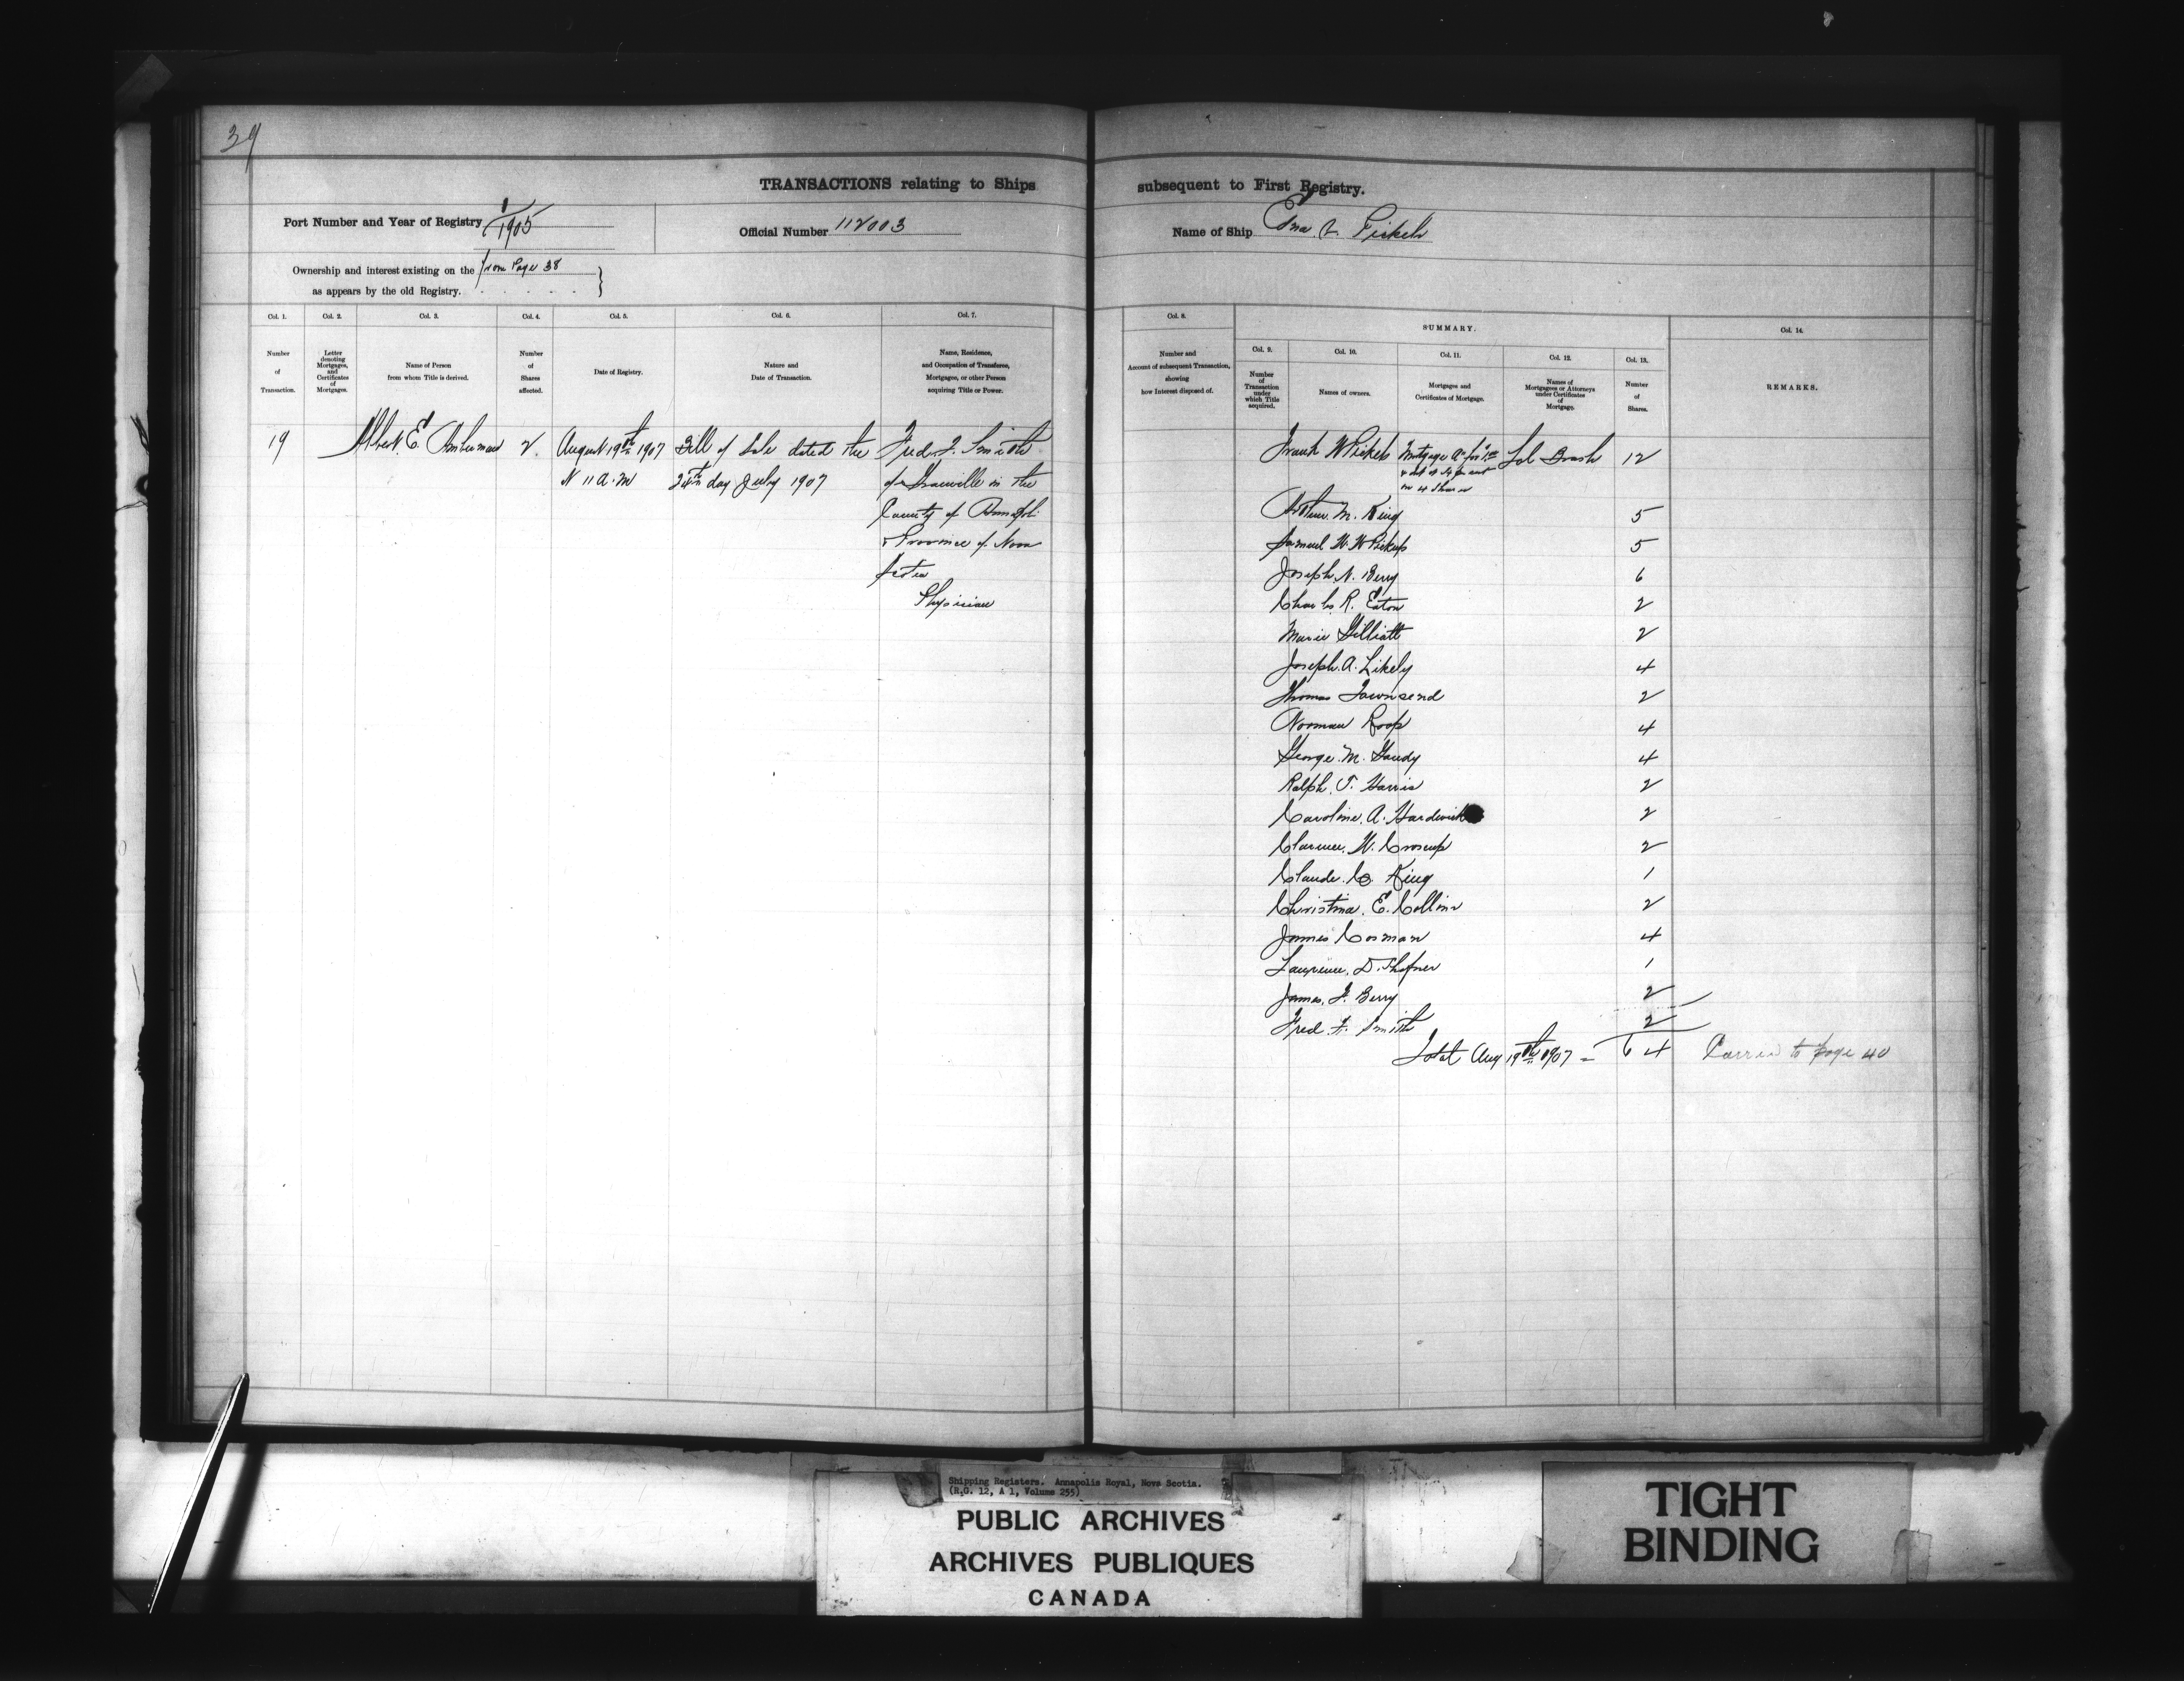 39
TRANSACTIONS relating to Ships subsequent to First Registry.
Port Number and Year of Registry 1/1905
Official Number 112003
Name of Ship
Ownership and interest existing on the from Page 38
as appears by the old Registry.
Col. 1.
Number
of
Transaction.
Col. 2.
Letter
denoting
Mortgages,
and
Certificates
of
Mortgages.
Col. 3.
Name of Person
from whom Title is derived.
Col. 4.
Number
of
Shares
affected.
Col. 5.
Date of Registry.
Col. 6.
Nature and
Date of Transaction.
Col. 7.
Name, Residence,
and Occupation of Transferee,
Mortgagee, or other Person
acquiring Title or Power.
Col. 8.
Number and
Account of subsequent Transaction,
showing
how Interest disposed of.
SUMMARY.
Col. 9.
Number
of
Transaction
under
which Title
acquired.
Col. 10.
Names of owners.
Col. 11.
Mortgages and
Certificates of Mortgage.
Col. 12.
Names of
Mortgagees or Attorneys
under Certificates
of
Mortgage.
Col. 13.
Number
of
Shares.
Col. 14.
REMARKS.
19
Albert E. 2
August 19th 1907
11 A.M
Bill of Sale dated the
24th day July 1907
Fred. F. Smith
of Granville in the
County of Annapolis
& Province of Nova
Scotia
Physician
Frank W Pickels Mortgage A 12
on 4 Shares
Arthur M. King 5
Samuel W. W Pickup 5
Joseph N. Berry 6
Charles R. Eaton 2
Marie Gilliatt 2
Joseph A. Likely 4
Thomas Townsend 2
Norman Roop 4
George M. 4
Ralph T. Harris 2
Caroline A. Hardwick 2
Clarence W. Croscup 2
Claude C. King 1
Christina E. Collins 2
James Cosman 4
Lawrence D. Shafner 1
James F. Berry 2
Fred F. Smith 2
Total Aug 19th 1907 = 64 Carried to page 40
Shipping Registers. Annapolis Royal, Nova Scotia.
(R.G. 12, A 1, Volume 255)
PUBLIC ARCHIVES
ARCHIVES PUBLIQUES
CANADA
TIGHT
BINDING